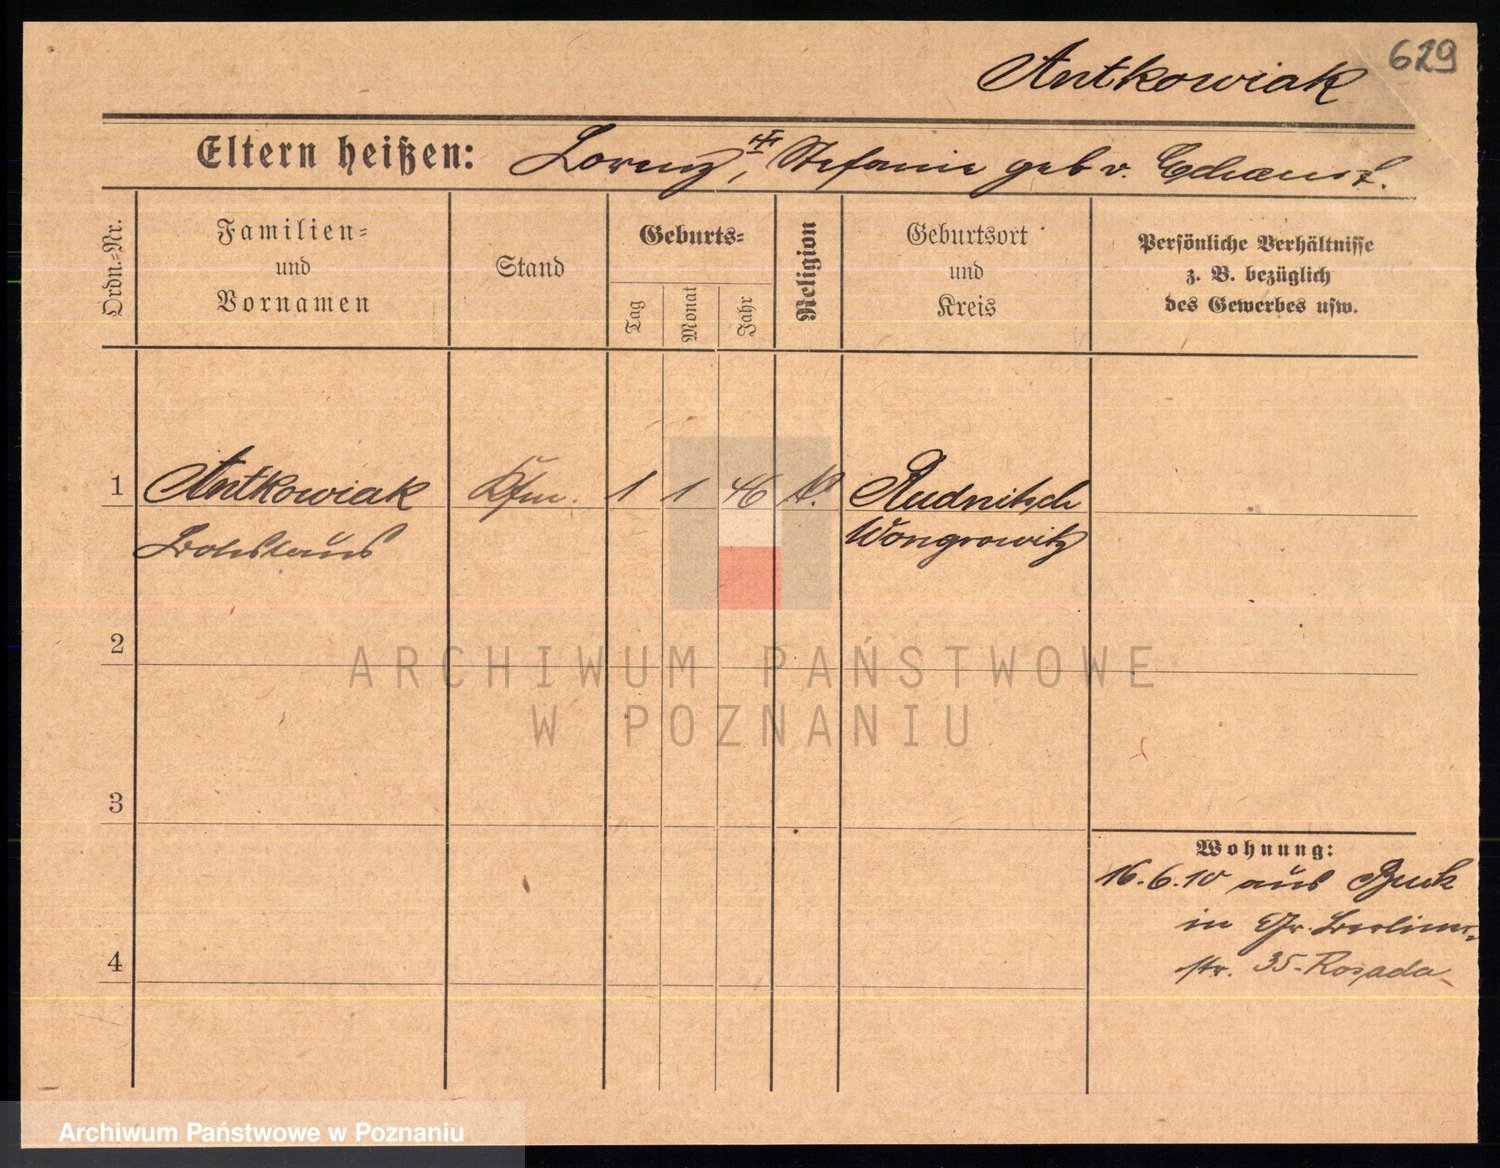 629
Antkowiak
Eltern heißen: Lorenz, Stefanie geb v.
Ordn.-Nr.
Familien-
und
Vornamen
Stand
Geburts-
Tag
Monat
Jahr
Religion
Geburtsort
und
Kreis
Persönliche Verhältnisse
z. B. bezüglich
des Gewerbes usw.
1 Antkowiak Kfm. 1 1 46 k. Rudnitsch
Wongrowitz
2
3
4
Wohnung:
16.6.10 aus Buck
in Gr. Berliner-
str. 35-Rosada
ARCHIWUM PAŃSTWOWE
W POZNANIU
Archiwum Państwowe w Poznaniu